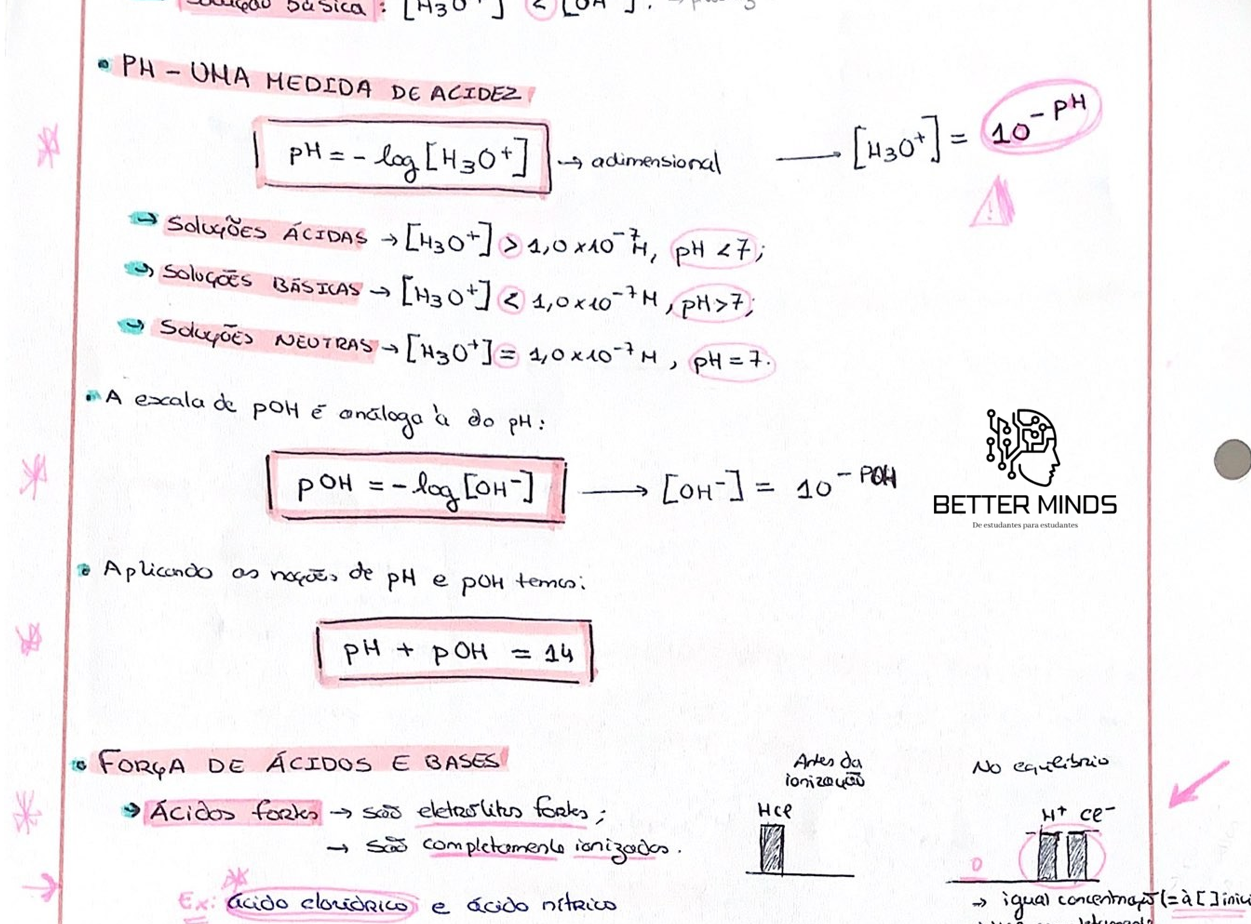 Solução básica: [H3O+] < [OH-].
• PH - UMA MEDIDA DE ACIDEZ
pH = - log [H3O+] → adimensional → [H3O+] = 10^-pH
!
→ Soluções ÁCIDAS → [H3O+] > 1,0 x10^-7 M, pH < 7;
→ Soluções BÁSICAS → [H3O+] < 1,0x10^-7 M, pH > 7;
→ Soluções NEUTRAS → [H3O+] = 1,0x10^-7 M, pH = 7.
• A escala de pOH é análoga à do pH:
pOH = - log [OH-] → [OH-] = 10^-POH
BETTER MINDS
De estudantes para estudantes
• Aplicando as noções de pH e pOH temos:
pH + pOH = 14
• FORÇA DE ÁCIDOS E BASES
→ Ácidos fortes → são eletrólitos fortes;
→ são completamente ionizados.
Ex: ácido clorídrico e ácido nítrico
Antes da
ionização
HCl
No equilíbrio
H+ Cl-
0
→ igual concentração (= à [ ]